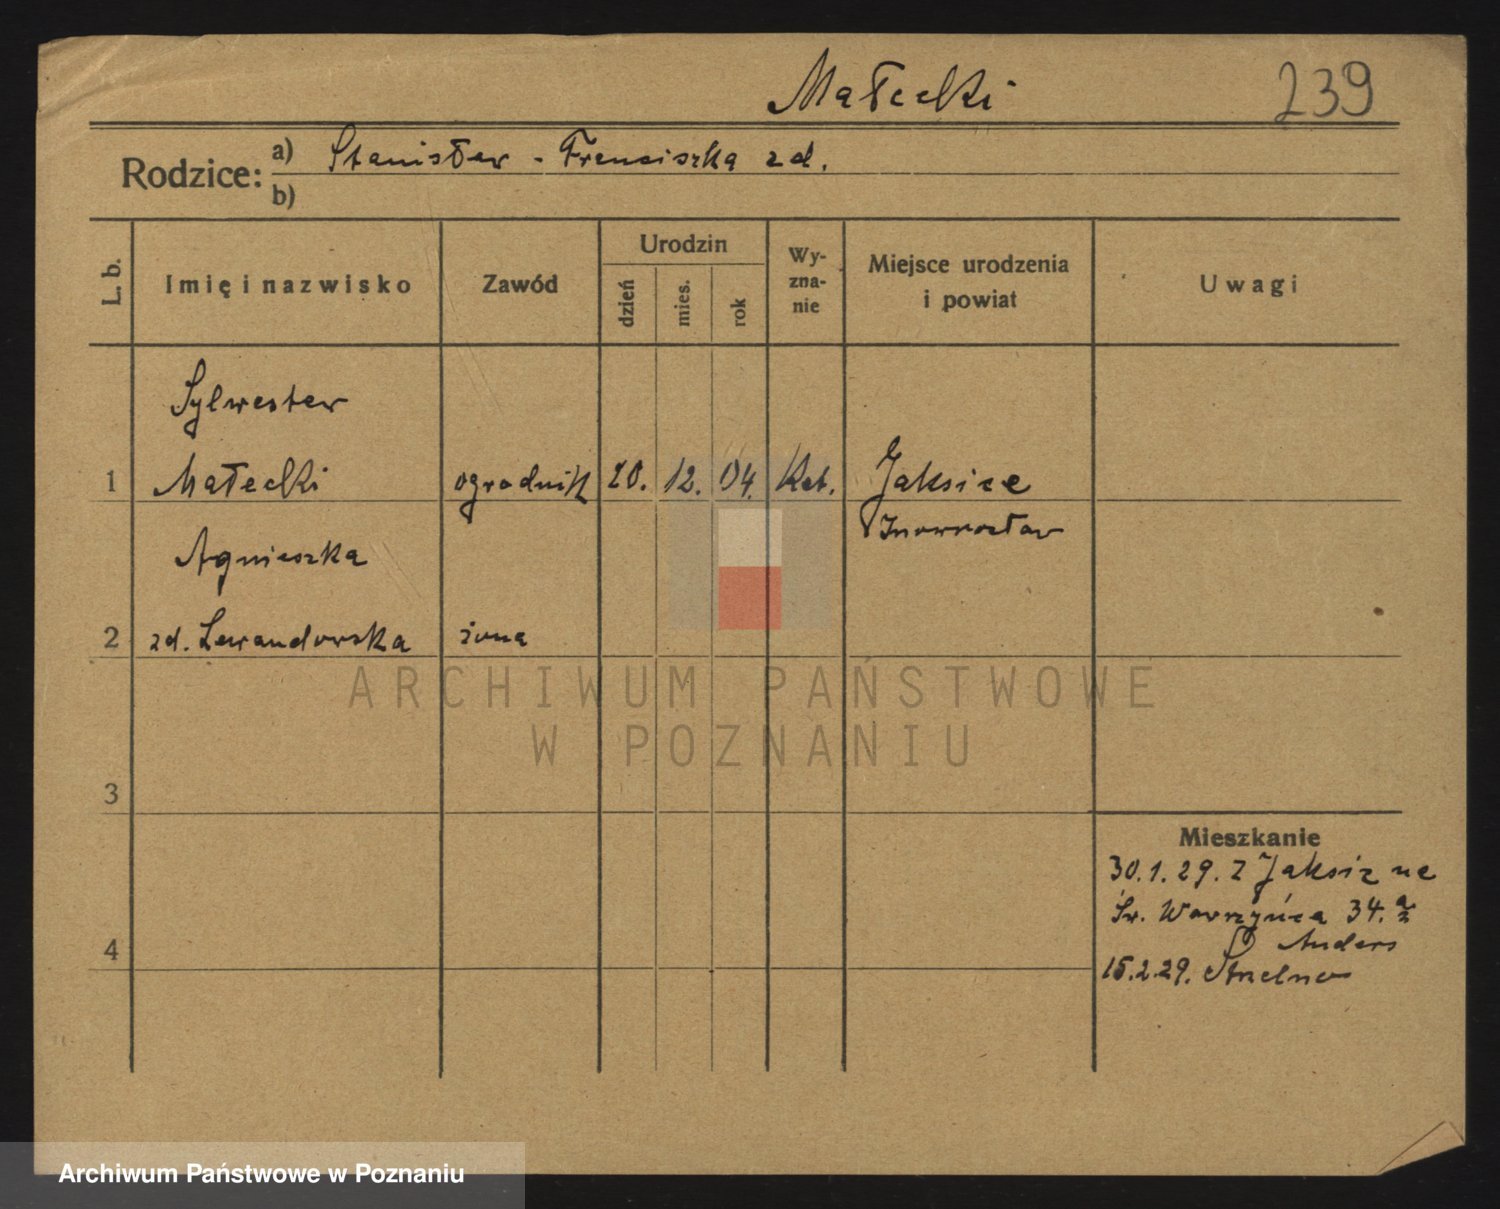 Małecki 239
Rodzice: a) Stanisław - Franciszka zd.
b)
L. b. Imię i nazwisko Zawód Urodzin dzień mies. rok Wyznanie Miejsce urodzenia i powiat Uwagi
Sylwester
1 Małecki ogrodnik 20. 12. 04. Kat. Jaksice
Inowrocław
Agnieszka
2 zd. Lewandowska żona
ARCHIWUM PAŃSTWOWE
W POZNANIU
3
Mieszkanie
30.1.29. z Jaksic na
Św. Wawrzyńca 34.
4 Anders
15.2.29. Strzelno
Archiwum Państwowe w Poznaniu